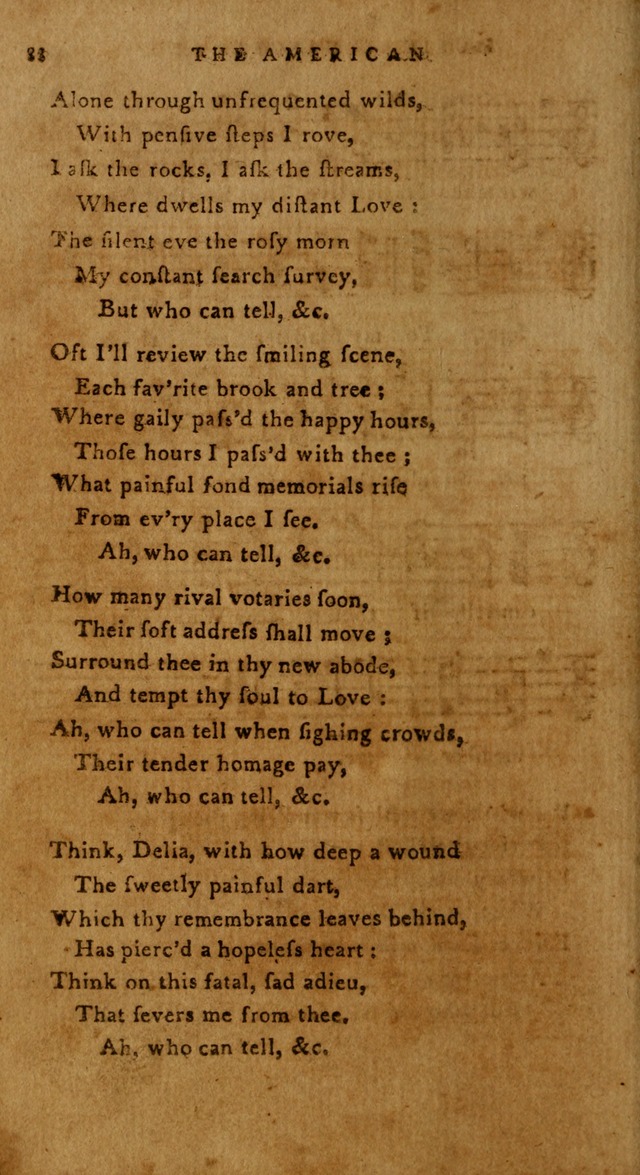 88 THE AMERICAN
Alone through unfrequented wilds,
With penſive ſteps I rove,
I aſk the rocks, I aſk the ſtreams,
Where dwells my diſtant Love :
The ſilent eve the roſy morn
My conſtant ſearch ſurvey,
But who can tell, &c.
Oft I'll review the ſmiling ſcene,
Each fav'rite brook and tree ;
Where gaily paſs'd the happy hours,
Thoſe hours I paſs'd with thee ;
What painful fond memorials riſe
From ev'ry place I ſee.
Ah, who can tell, &c.
How many rival votaries ſoon,
Their ſoft addreſs ſhall move ;
Surround thee in thy new abode,
And tempt thy ſoul to Love :
Ah, who can tell when ſighing crowds,
Their tender homage pay,
Ah, who can tell, &c.
Think, Delia, with how deep a wound
The ſweetly painful dart,
Which thy remembrance leaves behind,
Has pierc'd a hopeleſs heart :
Think on this fatal, ſad adieu,
That ſevers me from thee.
Ah, who can tell, &c.